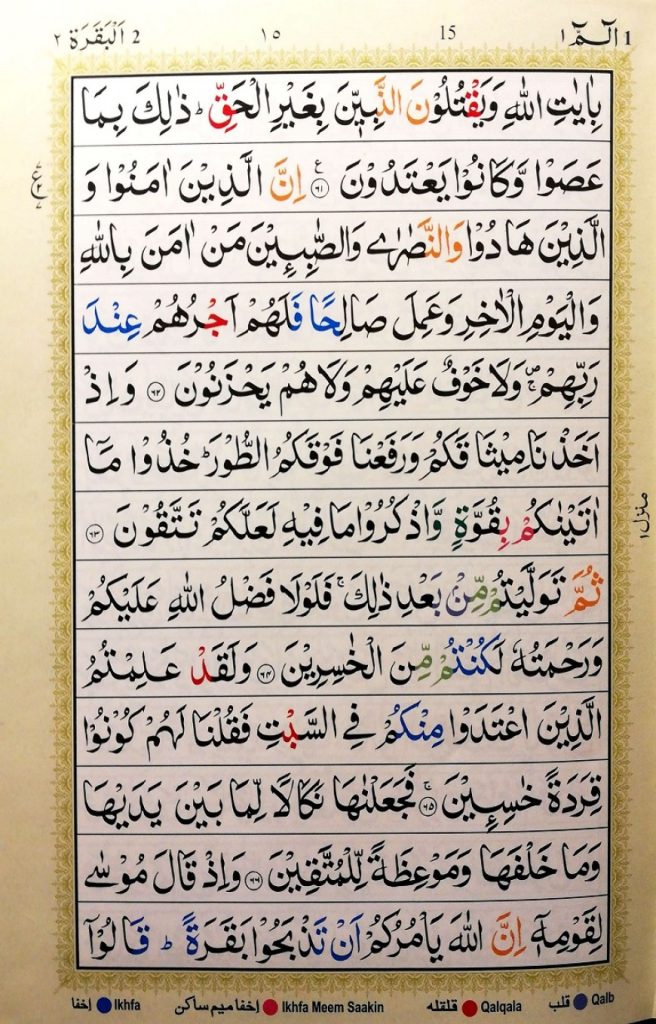 الٓمّٓ ١ 1
15
١٥
اَلْبَقَرَة ٢ 2
بِاٰيٰتِ اللّٰهِ وَيَقْتُلُوْنَ النَّبِيّٖنَ بِغَيْرِ الْحَقِّ ؕ ذٰلِكَ بِمَا
عَصَوْا وَّكَانُوْا يَعْتَدُوْنَ ﴿٦١﴾ اِنَّ الَّذِيْنَ اٰمَنُوْا وَ
الَّذِيْنَ هَادُوْا وَالنَّصٰرٰى وَالصّٰبِـِٕيْنَ مَنْ اٰمَنَ بِاللّٰهِ
وَالْيَوْمِ الْاٰخِرِ وَعَمِلَ صَالِحًا فَلَهُمْ اَجْرُهُمْ عِنْدَ
رَبِّهِمْ ۪ۚ وَلَا خَوْفٌ عَلَيْهِمْ وَلَا هُمْ يَحْزَنُوْنَ ﴿٦٢﴾ وَاِذْ
اَخَذْنَا مِيْثَاقَكُمْ وَرَفَعْنَا فَوْقَكُمُ الطُّوْرَ ؕ خُذُوْا مَاۤ
اٰتَيْنٰكُمْ بِقُوَّةٍ وَّاذْكُرُوْا مَا فِيْهِ لَعَلَّكُمْ تَتَّقُوْنَ ﴿٦٣﴾
ثُمَّ تَوَلَّيْتُمْ مِّنْۢ بَعْدِ ذٰلِكَ ۚ فَلَوْلَا فَضْلُ اللّٰهِ عَلَيْكُمْ
وَرَحْمَتُهٗ لَكُنْتُمْ مِّنَ الْخٰسِرِيْنَ ﴿٦٤﴾ وَلَقَدْ عَلِمْتُمُ
الَّذِيْنَ اعْتَدَوْا مِنْكُمْ فِي السَّبْتِ فَقُلْنَا لَهُمْ كُوْنُوْا
قِرَدَةً خٰسِـِٕيْنَ ﴿٦٥﴾ ۚ فَجَعَلْنٰهَا نَكَالًا لِّمَا بَيْنَ يَدَيْهَا
وَمَا خَلْفَهَا وَمَوْعِظَةً لِّلْمُتَّقِيْنَ ﴿٦٦﴾ وَاِذْ قَالَ مُوْسٰى
لِقَوْمِهٖۤ اِنَّ اللّٰهَ يَاْمُرُكُمْ اَنْ تَذْبَحُوْا بَقَرَةً ؕ قَالُوْۤا
ع
منزل ١
Qalb قلب
Qalqala قلقله
Ikhfa Meem Saakin إخفا ميم ساكن
Ikhfa إخفا